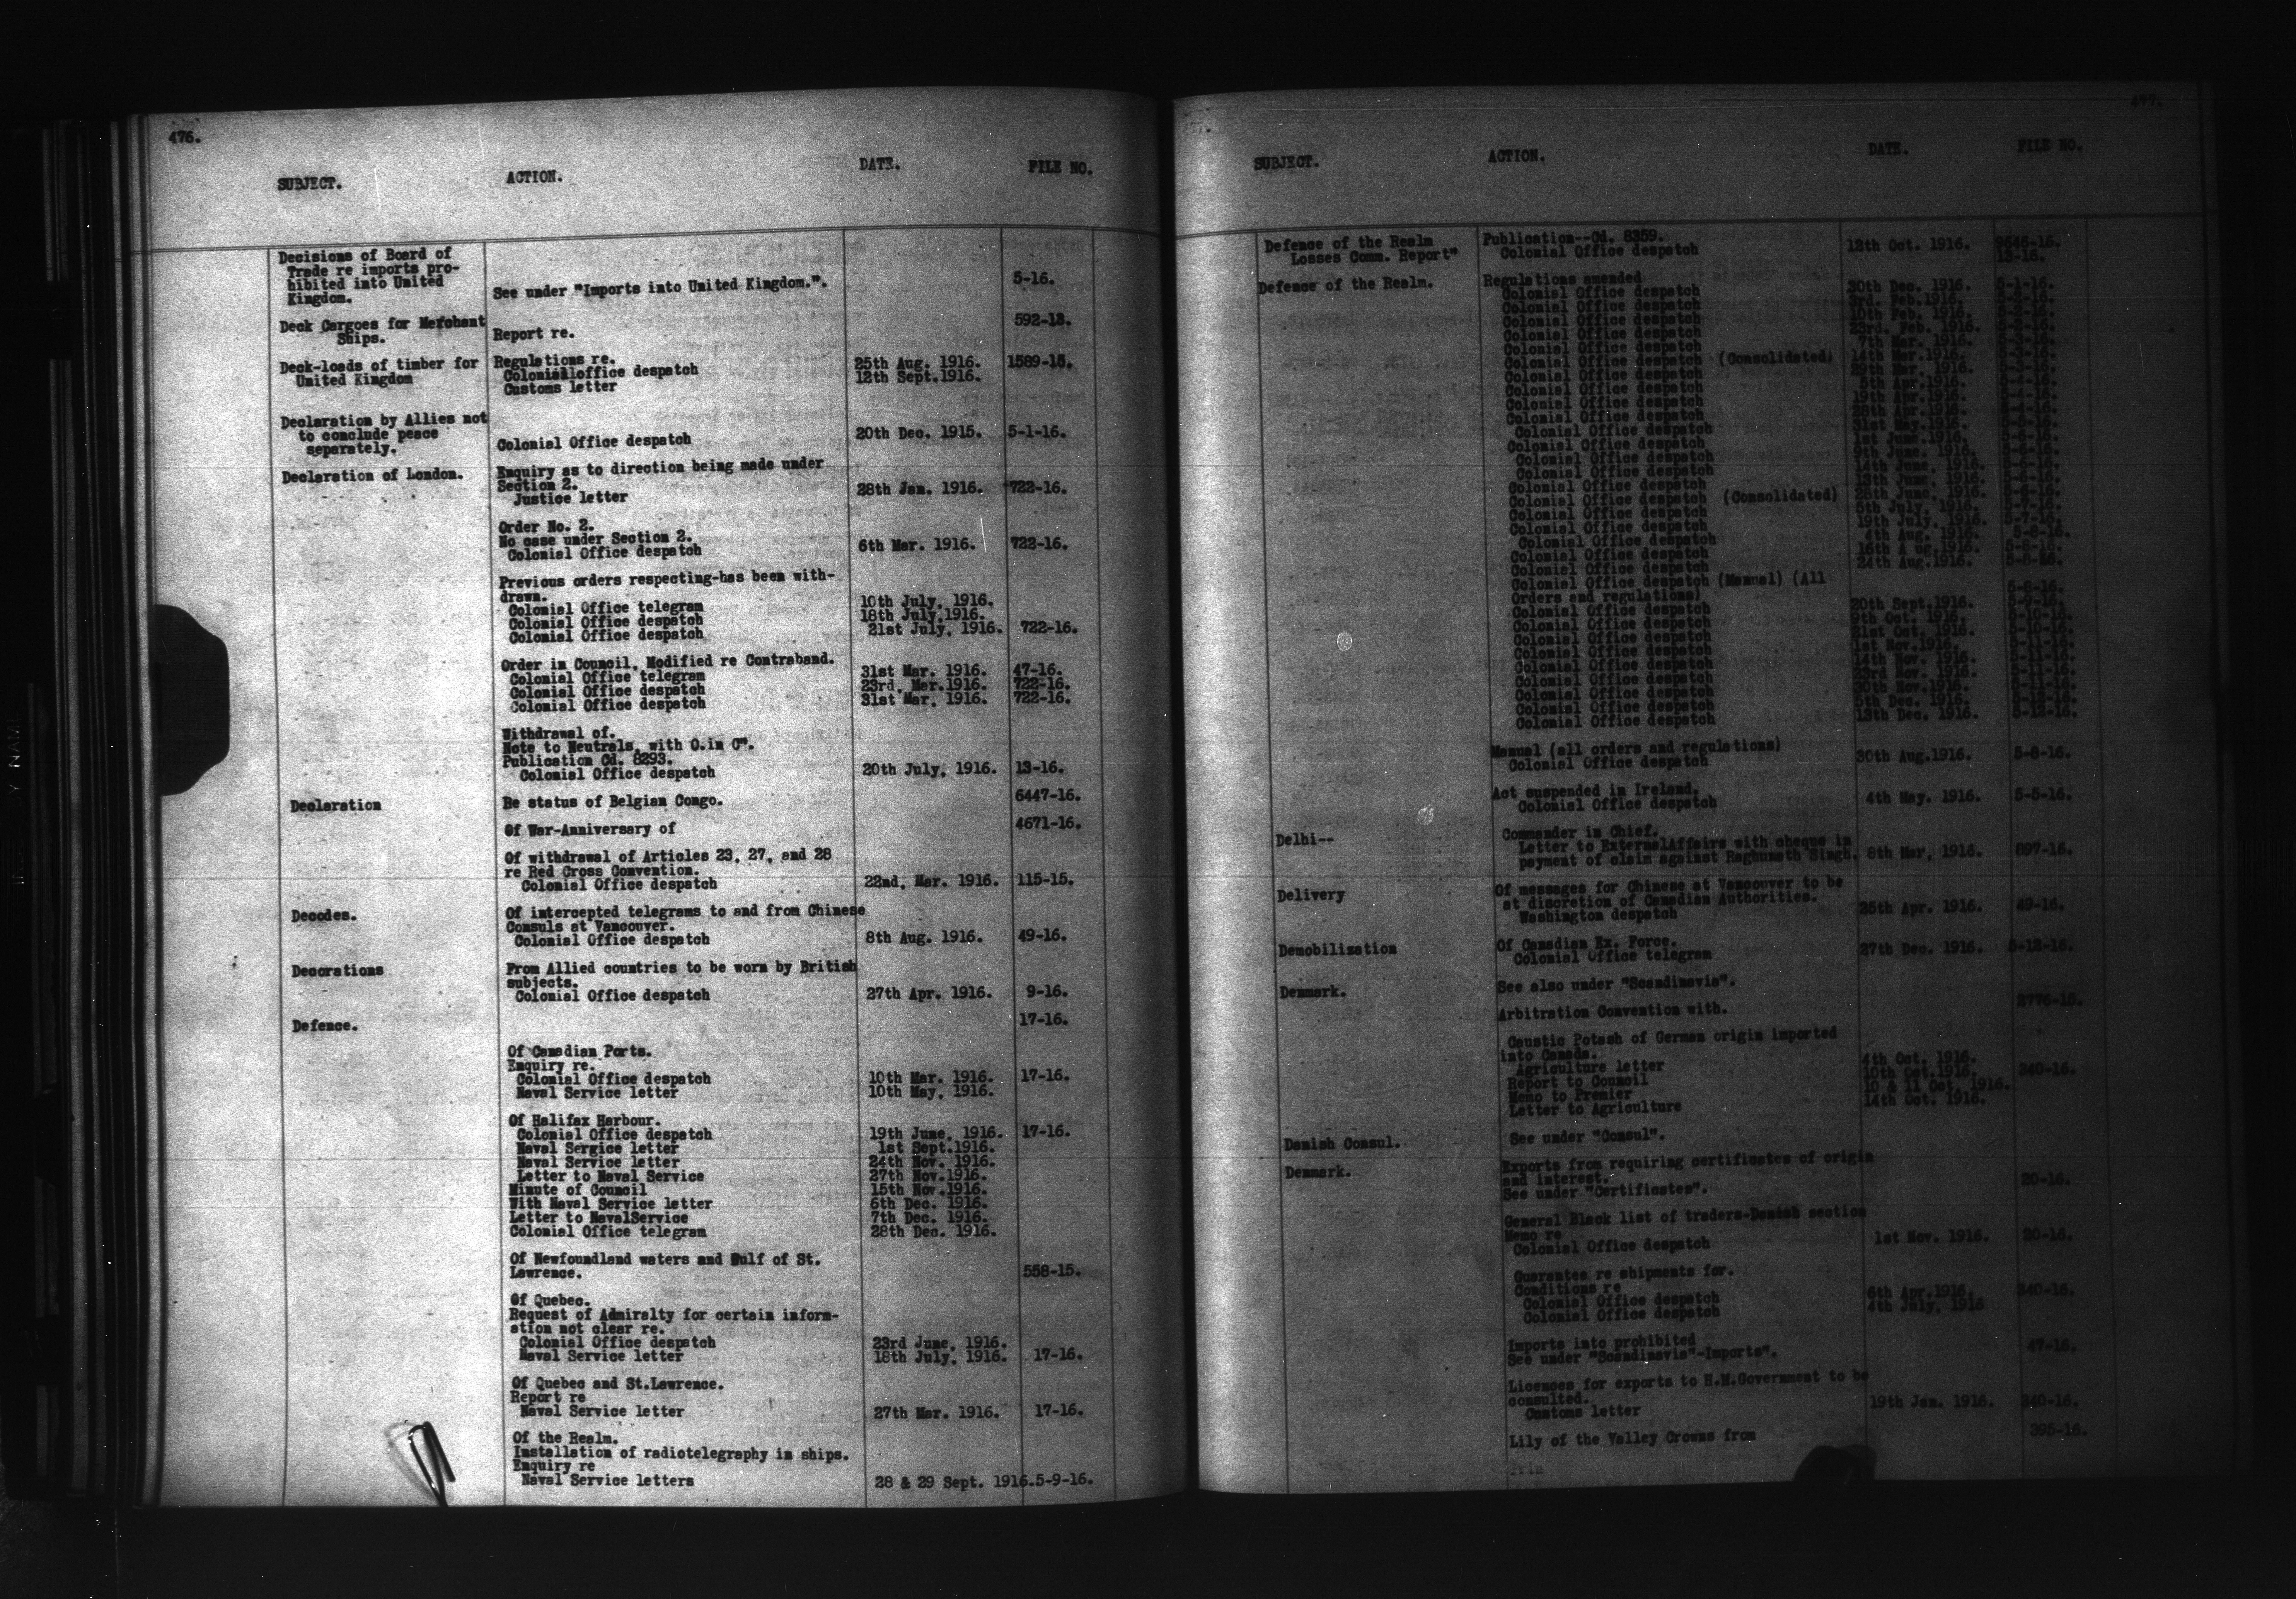 476.
SUBJECT. ACTION. DATE. FILE NO.
Decisions of Board of
Trade re imports pro-
hibited into United
Kingdom. See under "Imports into United Kingdom.". 5-16.
Deck Cargoes for Merchant 592-13.
Ships. Report re.
Deck-loads of timber for Regulations re.
United Kingdom Colonialloffice despatch 25th Aug. 1916. 1589-15.
Customs letter 12th Sept.1916.
Declaration by Allies not
to conclude peace
separately. Colonial Office despatch 20th Dec. 1915. 5-1-16.
Declaration of London. Enquiry as to direction being made under
Section 2.
Justice letter 28th Jan. 1916. 722-16.
Order No. 2.
No case under Section 2.
Colonial Office despatch 6th Mar. 1916. 722-16.
Previous orders respecting-has been with-
drawn.
Colonial Office telegram 10th July, 1916.
Colonial Office despatch 18th July,1916.
Colonial Office despatch 21st July, 1916. 722-16.
Order in Council, Modified re Contraband.
Colonial Office telegram 31st Mar. 1916. 47-16.
Colonial Office despatch 23rd, Mar.1916. 722-16.
Colonial Office despatch 31st Mar, 1916. 722-16.
Withdrawal of.
Note to Neutrals, with O.in C".
Publication Cd. 8293.
Colonial Office despatch 20th July, 1916. 13-16.
Declaration Re status of Belgian Congo. 6447-16.
Of War-Anniversary of 4671-16.
Of withdrawal of Articles 23, 27, and 28
re Red Cross Convention.
Colonial Office despatch 22nd, Mar. 1916. 115-15.
Decodes. Of intercepted telegrams to and from Chinese
Consuls at Vancouver.
Colonial Office despatch 8th Aug. 1916. 49-16.
Decorations From Allied countries to be worn by British
subjects.
Colonial Office despatch 27th Apr. 1916. 9-16.
Defence. 17-16.
Of Canadian Ports.
Enquiry re.
Colonial Office despatch 10th Mar. 1916. 17-16.
Naval Service letter 10th May, 1916.
Of Halifax Harbour.
Colonial Office despatch 19th June, 1916. 17-16.
Naval Sergice letter 1st Sept.1916.
Naval Service letter 24th Nov. 1916.
Letter to Naval Service 27th Nov.1916.
Minute of Council 15th Nov.1916.
With Naval Service letter 6th Dec. 1916.
Letter to NavalService 7th Dec. 1916.
Colonial Office telegram 28th Dec. 1916.
Of Newfoundland waters and Gulf of St.
Lawrence. 558-15.
Of Quebec.
Request of Admiralty for certain inform-
ation not clear re.
Colonial Office despatch 23rd June, 1916.
Naval Service letter 18th July, 1916. 17-16.
Of Quebec and St.Lawrence.
Report re
Naval Service letter 27th Mar. 1916. 17-16.
Of the Realm.
Installation of radiotelegraphy in ships.
Enquiry re
Naval Service letters 28 & 29 Sept. 1916.5-9-16.
477.
SUBJECT. ACTION. DATE. FILE NO.
Defence of the Realm Publication--Cd. 8359.
Losses Comm. Report" Colonial Office despatch 12th Oct. 1916. 9646-16.
13-16.
Defence of the Realm. Regulations amended
Colonial Office despatch 30th Dec. 1916. 5-1-16.
Colonial Office despatch 3rd. Feb.1916. 5-2-16.
Colonial Office despatch 10th Feb. 1916.
Colonial Office despatch 23rd. Feb. 1916.
Colonial Office despatch 7th Mar. 1916. 5-3-16.
Colonial Office despatch (Consolidated) 14th Mar.1916. 5-3-16.
Colonial Office despatch 29th Mar. 1916. 5-3-16.
Colonial Office despatch 5th Apr.1916. 5-4-16.
Colonial Office despatch 19th Apr.1916. 5-4-16.
Colonial Office despatch 28th Apr.1916. 5-4-16.
Colonial Office despatch 31st May.1916.
Colonial Office despatch 1st June.1916.
Colonial Office despatch 9th June. 1916. 5-6-16.
Colonial Office despatch 14th June. 1916. 5-6-16.
Colonial Office despatch 13th June. 1916. 5-6-16.
Colonial Office despatch (Consolidated) 28th June. 1916. 5-6-16.
Colonial Office despatch 5th July. 1916. 5-7-16.
Colonial Office despatch 19th July. 1916. 5-7-16.
Colonial Office despatch 4th Aug. 1916. 5-8-16.
Colonial Office despatch 16th A ug.1916. 5-8-16.
Colonial Office despatch 24th Aug.1916. 5-8-16.
Colonial Office despatch (Manual) (All
Orders and regulations) 5-8-16.
Colonial Office despatch 20th Sept.1916. 5-9-16.
Colonial Office despatch 9th Oct. 1916. 5-10-16.
Colonial Office despatch 21st Oct. 1916. 5-10-16.
Colonial Office despatch 1st Nov.1916. 5-11-16.
Colonial Office despatch 14th Nov. 1916. 5-11-16.
Colonial Office despatch 23rd Nov. 1916. 5-11-16.
Colonial Office despatch 30th Nov.1916. 5-11-16.
Colonial Office despatch 5th Dec. 1916. 5-12-16.
Colonial Office despatch 13th Dec. 1916. 5-12-16.
Manual (all orders and regulations)
Colonial Office despatch 30th Aug.1916. 5-8-16.
Act suspended in Ireland.
Colonial Office despatch 4th May. 1916. 5-5-16.
Delhi-- Commander in Chief.
Letter to ExternalAffairs with cheque in
payment of claim against Raghunath Singh. 8th Mar, 1916. 897-16.
Delivery Of messages for Chinese at Vancouver to be
at discretion of Canadian Authorities.
Washington despatch 25th Apr. 1916. 49-16.
Demobilization Of Canadian Ex. Force.
Colonial Office telegram 27th Dec. 1916. 5-12-16.
Denmark. See also under "Scandinavia".
Arbitration Convention with. 2776-15.
Caustic Potash of German origin imported
into Canada.
Agriculture letter 4th Oct. 1916.
Report to Council 10th Oct.1916. 340-16.
Memo to Premier 10 & 11 Oct. 1916.
Letter to Agriculture 14th Oct. 1916.
Danish Consul. See under "Consul".
Denmark. Exports from requiring certificates of origin
and interest.
See under "Certificates". 20-16.
General Black list of traders-Danish section
Memo re
Colonial Office despatch 1st Nov. 1916. 20-16.
Guarantee re shipments for.
Conditions re
Colonial Office despatch 6th Apr.1916. 340-16.
Colonial Office despatch 4th July, 1916
Imports into prohibited
See under "Scandinavia"-Imports". 47-16.
Licences for exports to H.M.Government to be
consulted.
Customs letter 19th Jan. 1916. 340-16.
Lily of the Valley Crowns from 395-16.